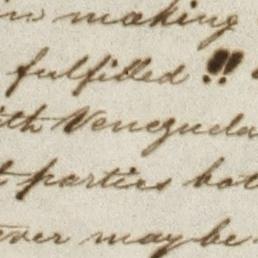 in making
fulfilled !!
ith Venezuela
t parties bot
ever may be